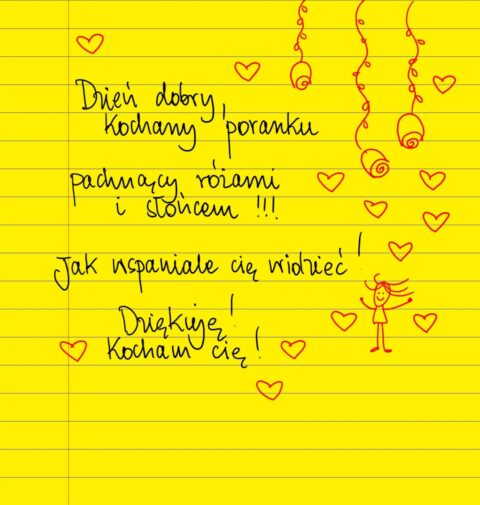 Dzień dobry,
kochany poranku
pachnący różami
i słońcem !!!
Jak wspaniale cię widzieć!
Dziękuję!
Kocham cię!